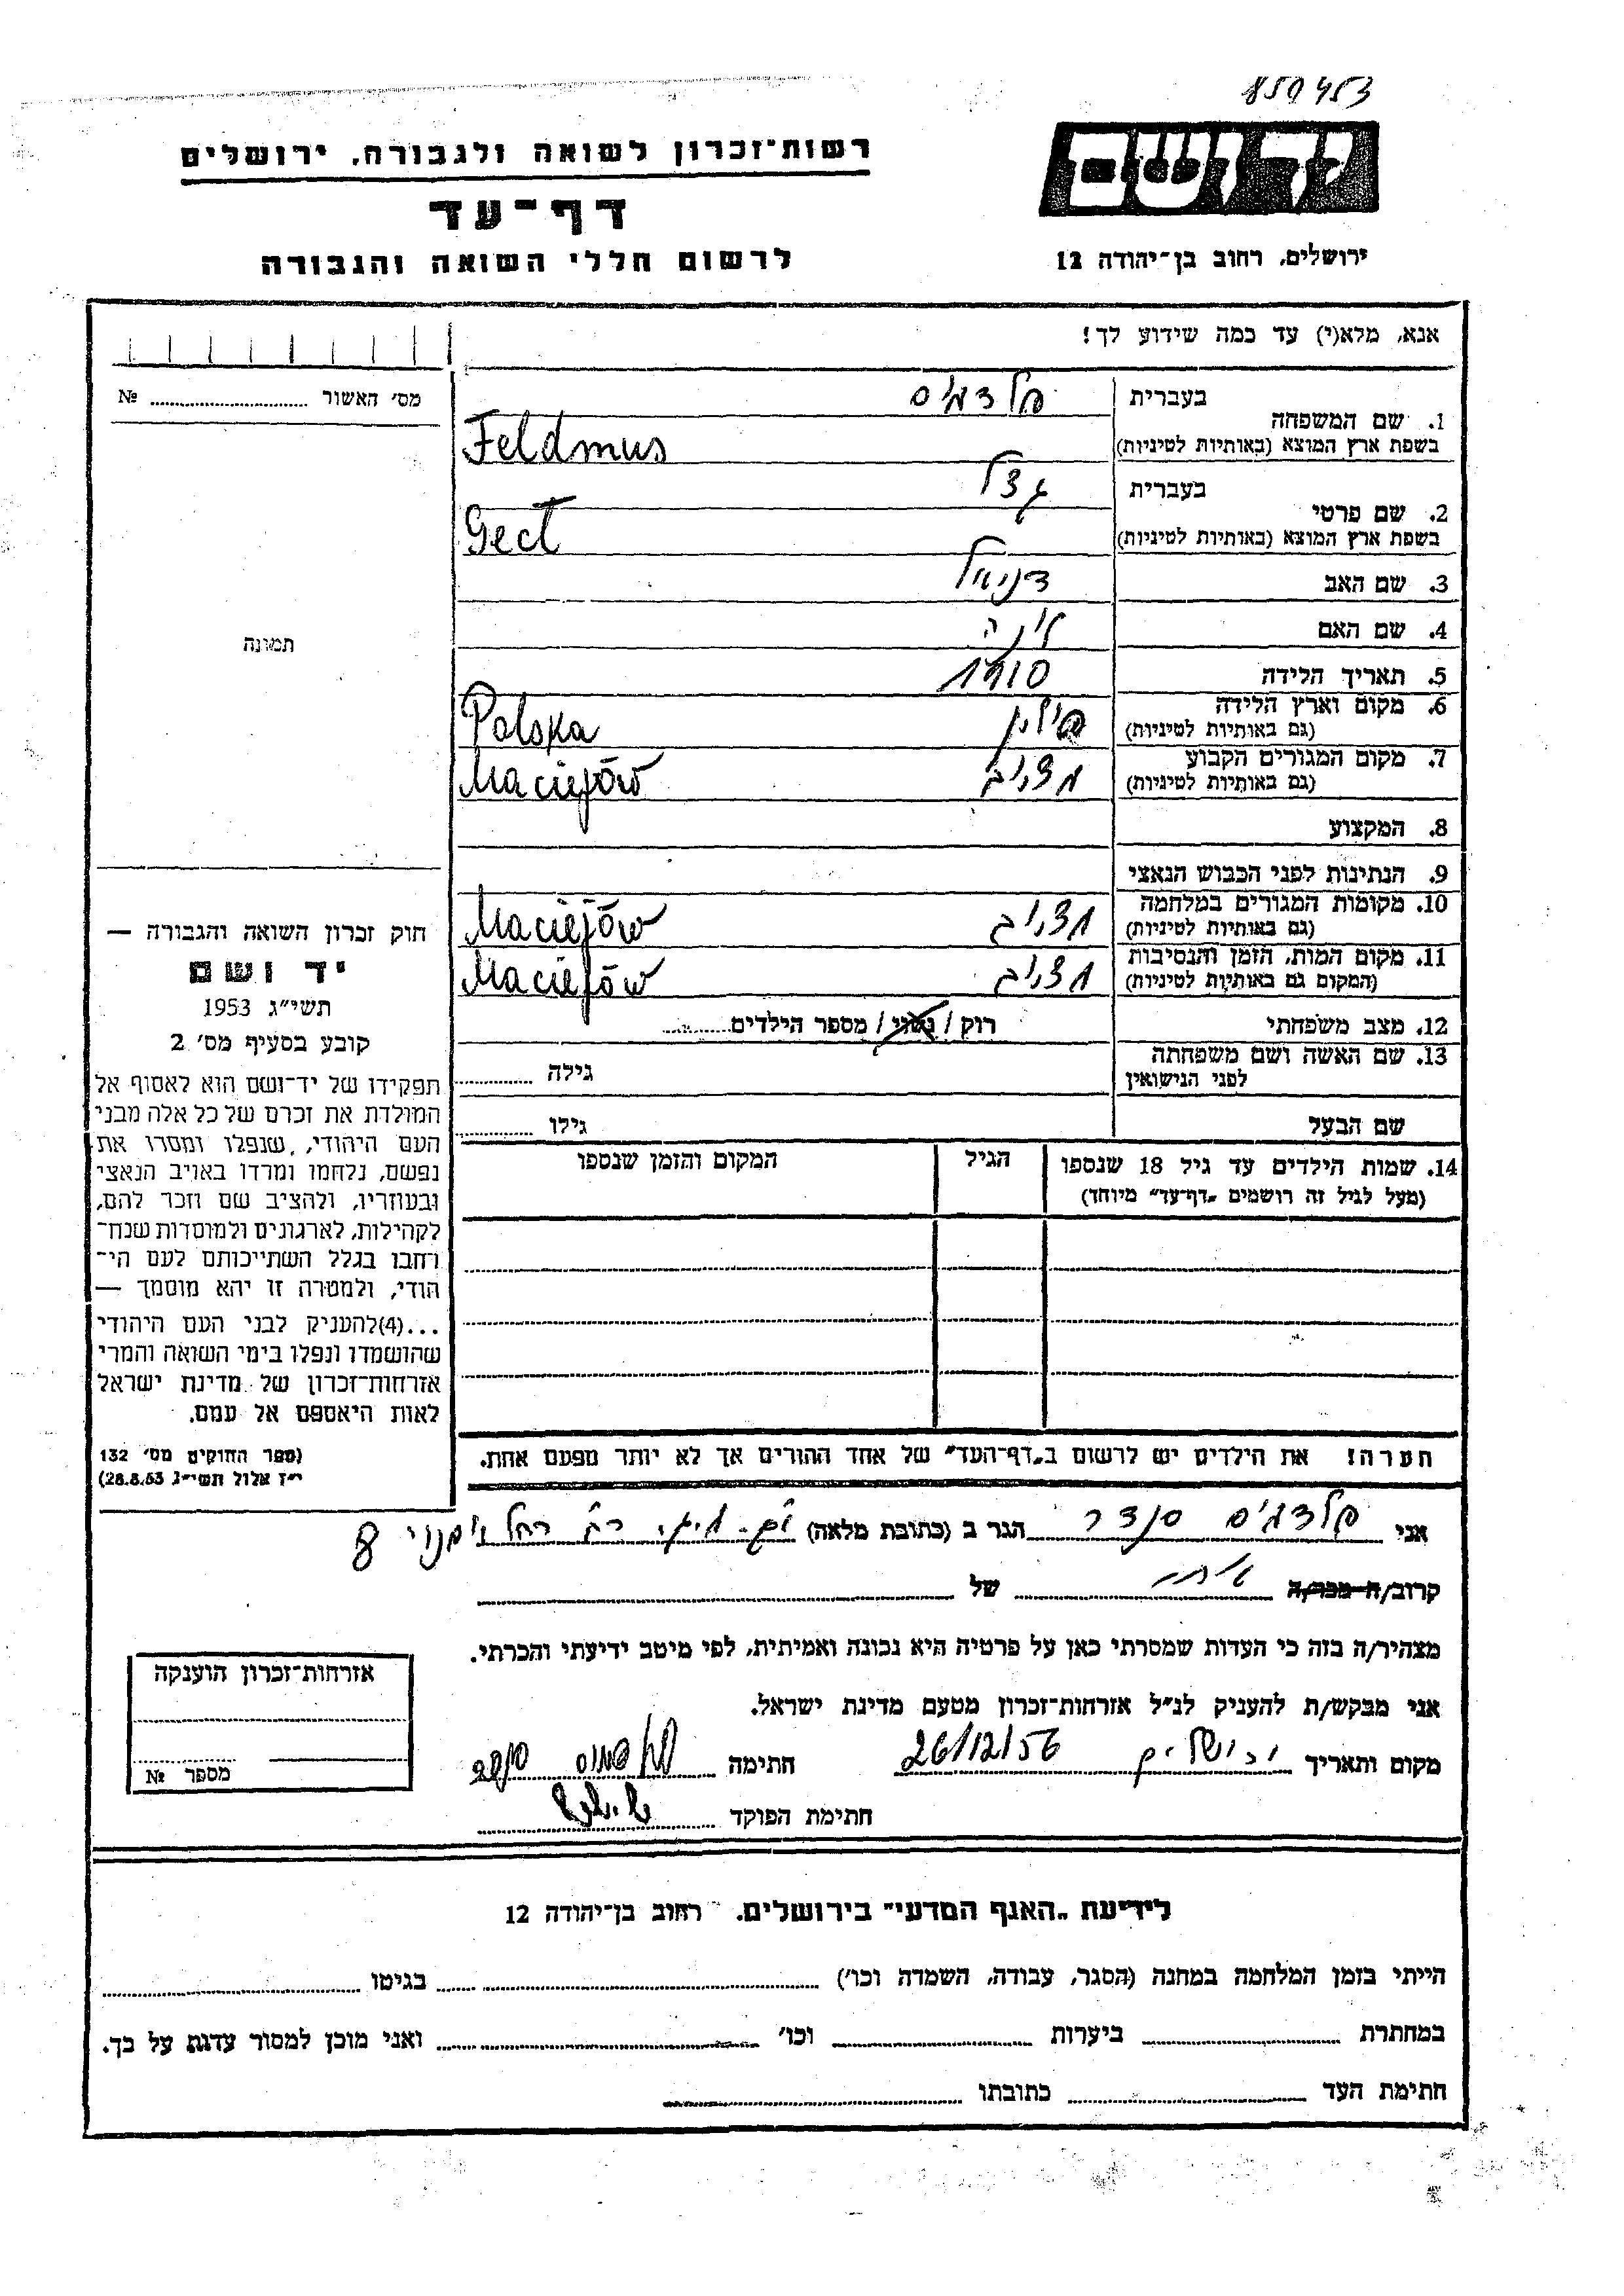 859453
רשות־זכרון לשואה ולגבורה, ירושלים
יד ושם
דף־עד
לרשום חללי השואה והגבורה
ירושלים, רחוב בן־יהודה 12
אנא, מלא(י) עד כמה שידוע לך!
מס׳ האשור № ........
1. שם המשפחה
בעברית פלדמוס
בשפת ארץ המוצא (באותיות לטיניות) Feldmus
2. שם פרטי
בעברית גצל
בשפת ארץ המוצא (באותיות לטיניות) Gecł
3. שם האב דניאל
4. שם האם
5. תאריך הלידה 1910
6. מקום וארץ הלידה פולין Polska
(גם באותיות לטיניות)
7. מקום המגורים הקבוע מציוב Maciejów
(גם באותיות לטיניות)
8. המקצוע
9. הנתינות לפני הכבוש הנאצי
10. מקומות המגורים במלחמה מציוב Maciejów
(גם באותיות לטיניות)
11. מקום המות, הזמן והנסיבות מציוב Maciejów
(המקום גם באותיות לטיניות)
12. מצב משפחתי רוק / נשוי / מספר הילדים........
13. שם האשה ושם משפחתה
לפני הנישואין
גילה ........
שם הבעל גילו ........
14. שמות הילדים עד גיל 18 שנספו
(מעל לגיל זה רושמים „דף־עד״ מיוחד)
הגיל
המקום והזמן שנספו
הערה! את הילדים יש לרשום ב„דף־העד״ של אחד ההורים אך לא יותר מפעם אחת.
תמונה
חוק זכרון השואה והגבורה —
יד ושם
תשי״ג 1953
קובע בסעיף מס׳ 2
תפקידו של יד־ושם הוא לאסוף אל
המולדת את זכרם של כל אלה מבני
העם היהודי, שנפלו ומסרו את
נפשם, נלחמו ומרדו באויב הנאצי
ובעוזריו, ולהציב שם וזכר להם,
לקהילות, לארגונים ולמוסדות שנח־
רחבו בגלל השתייכותם לעם הי־
הודי, ולמטרה זו יהא מוסמך —
...(4)להעניק לבני העם היהודי
שהושמדו ונפלו בימי השואה והמרי
אזרחות־זכרון של מדינת ישראל
לאות היאספם אל עמם.
(ספר החוקים מס׳ 132
י״ז אלול תשי״ג 28.8.53)
אני פלדמוס סנדר הגר ב (כתובת מלאה) רח׳ רחל 8
קרוב/ה מכר/ה של
מצהיר/ה בזה כי העדות שמסרתי כאן על פרטיה היא נכונה ואמיתית, לפי מיטב ידיעתי והכרתי.
אני מבקש/ת להעניק לנ״ל אזרחות־זכרון מטעם מדינת ישראל.
מקום ותאריך ירושלים 26/12/56 חתימה פלדמוס סנדר
חתימת הפוקד
אזרחות־זכרון הוענקה
מספר №
לידיעת „האגף המדעי״ בירושלים, רחוב בן־יהודה 12
הייתי בזמן המלחמה במחנה (הסגר, עבודה, השמדה וכו׳) בגיטו
במחתרת ביערות וכו׳ ואני מוכן למסור עדות על כך.
חתימת העד כתובתו